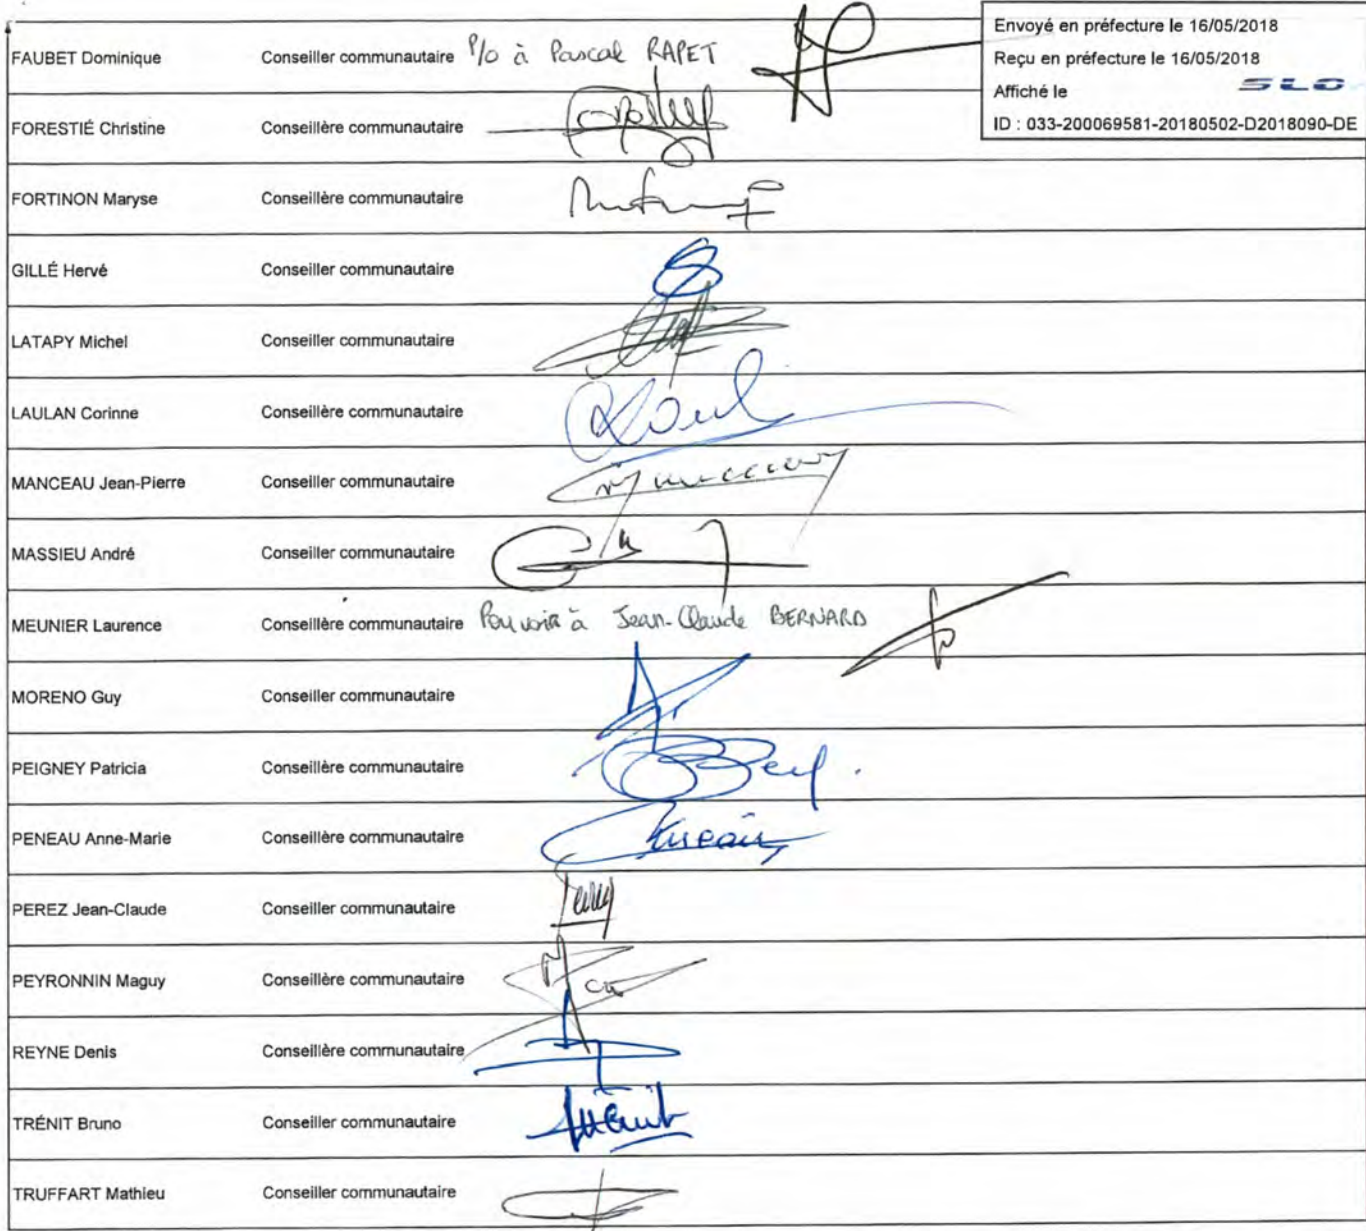 Envoyé en préfecture le 16/05/2018
Reçu en préfecture le 16/05/2018
Affiché le SLO
ID : 033-200069581-20180502-D2018090-DE
FAUBET Dominique Conseiller communautaire P/o à Pascal RAPET
FORESTIÉ Christine Conseillère communautaire
FORTINON Maryse Conseillère communautaire
GILLÉ Hervé Conseiller communautaire
LATAPY Michel Conseiller communautaire
LAULAN Corinne Conseillère communautaire
MANCEAU Jean-Pierre Conseiller communautaire
MASSIEU André Conseiller communautaire
MEUNIER Laurence Conseillère communautaire Pouvoir à Jean-Claude BERNARD
MORENO Guy Conseiller communautaire
PEIGNEY Patricia Conseillère communautaire
PENEAU Anne-Marie Conseillère communautaire
PEREZ Jean-Claude Conseiller communautaire
PEYRONNIN Maguy Conseillère communautaire
REYNE Denis Conseillère communautaire
TRÉNIT Bruno Conseiller communautaire
TRUFFART Mathieu Conseiller communautaire